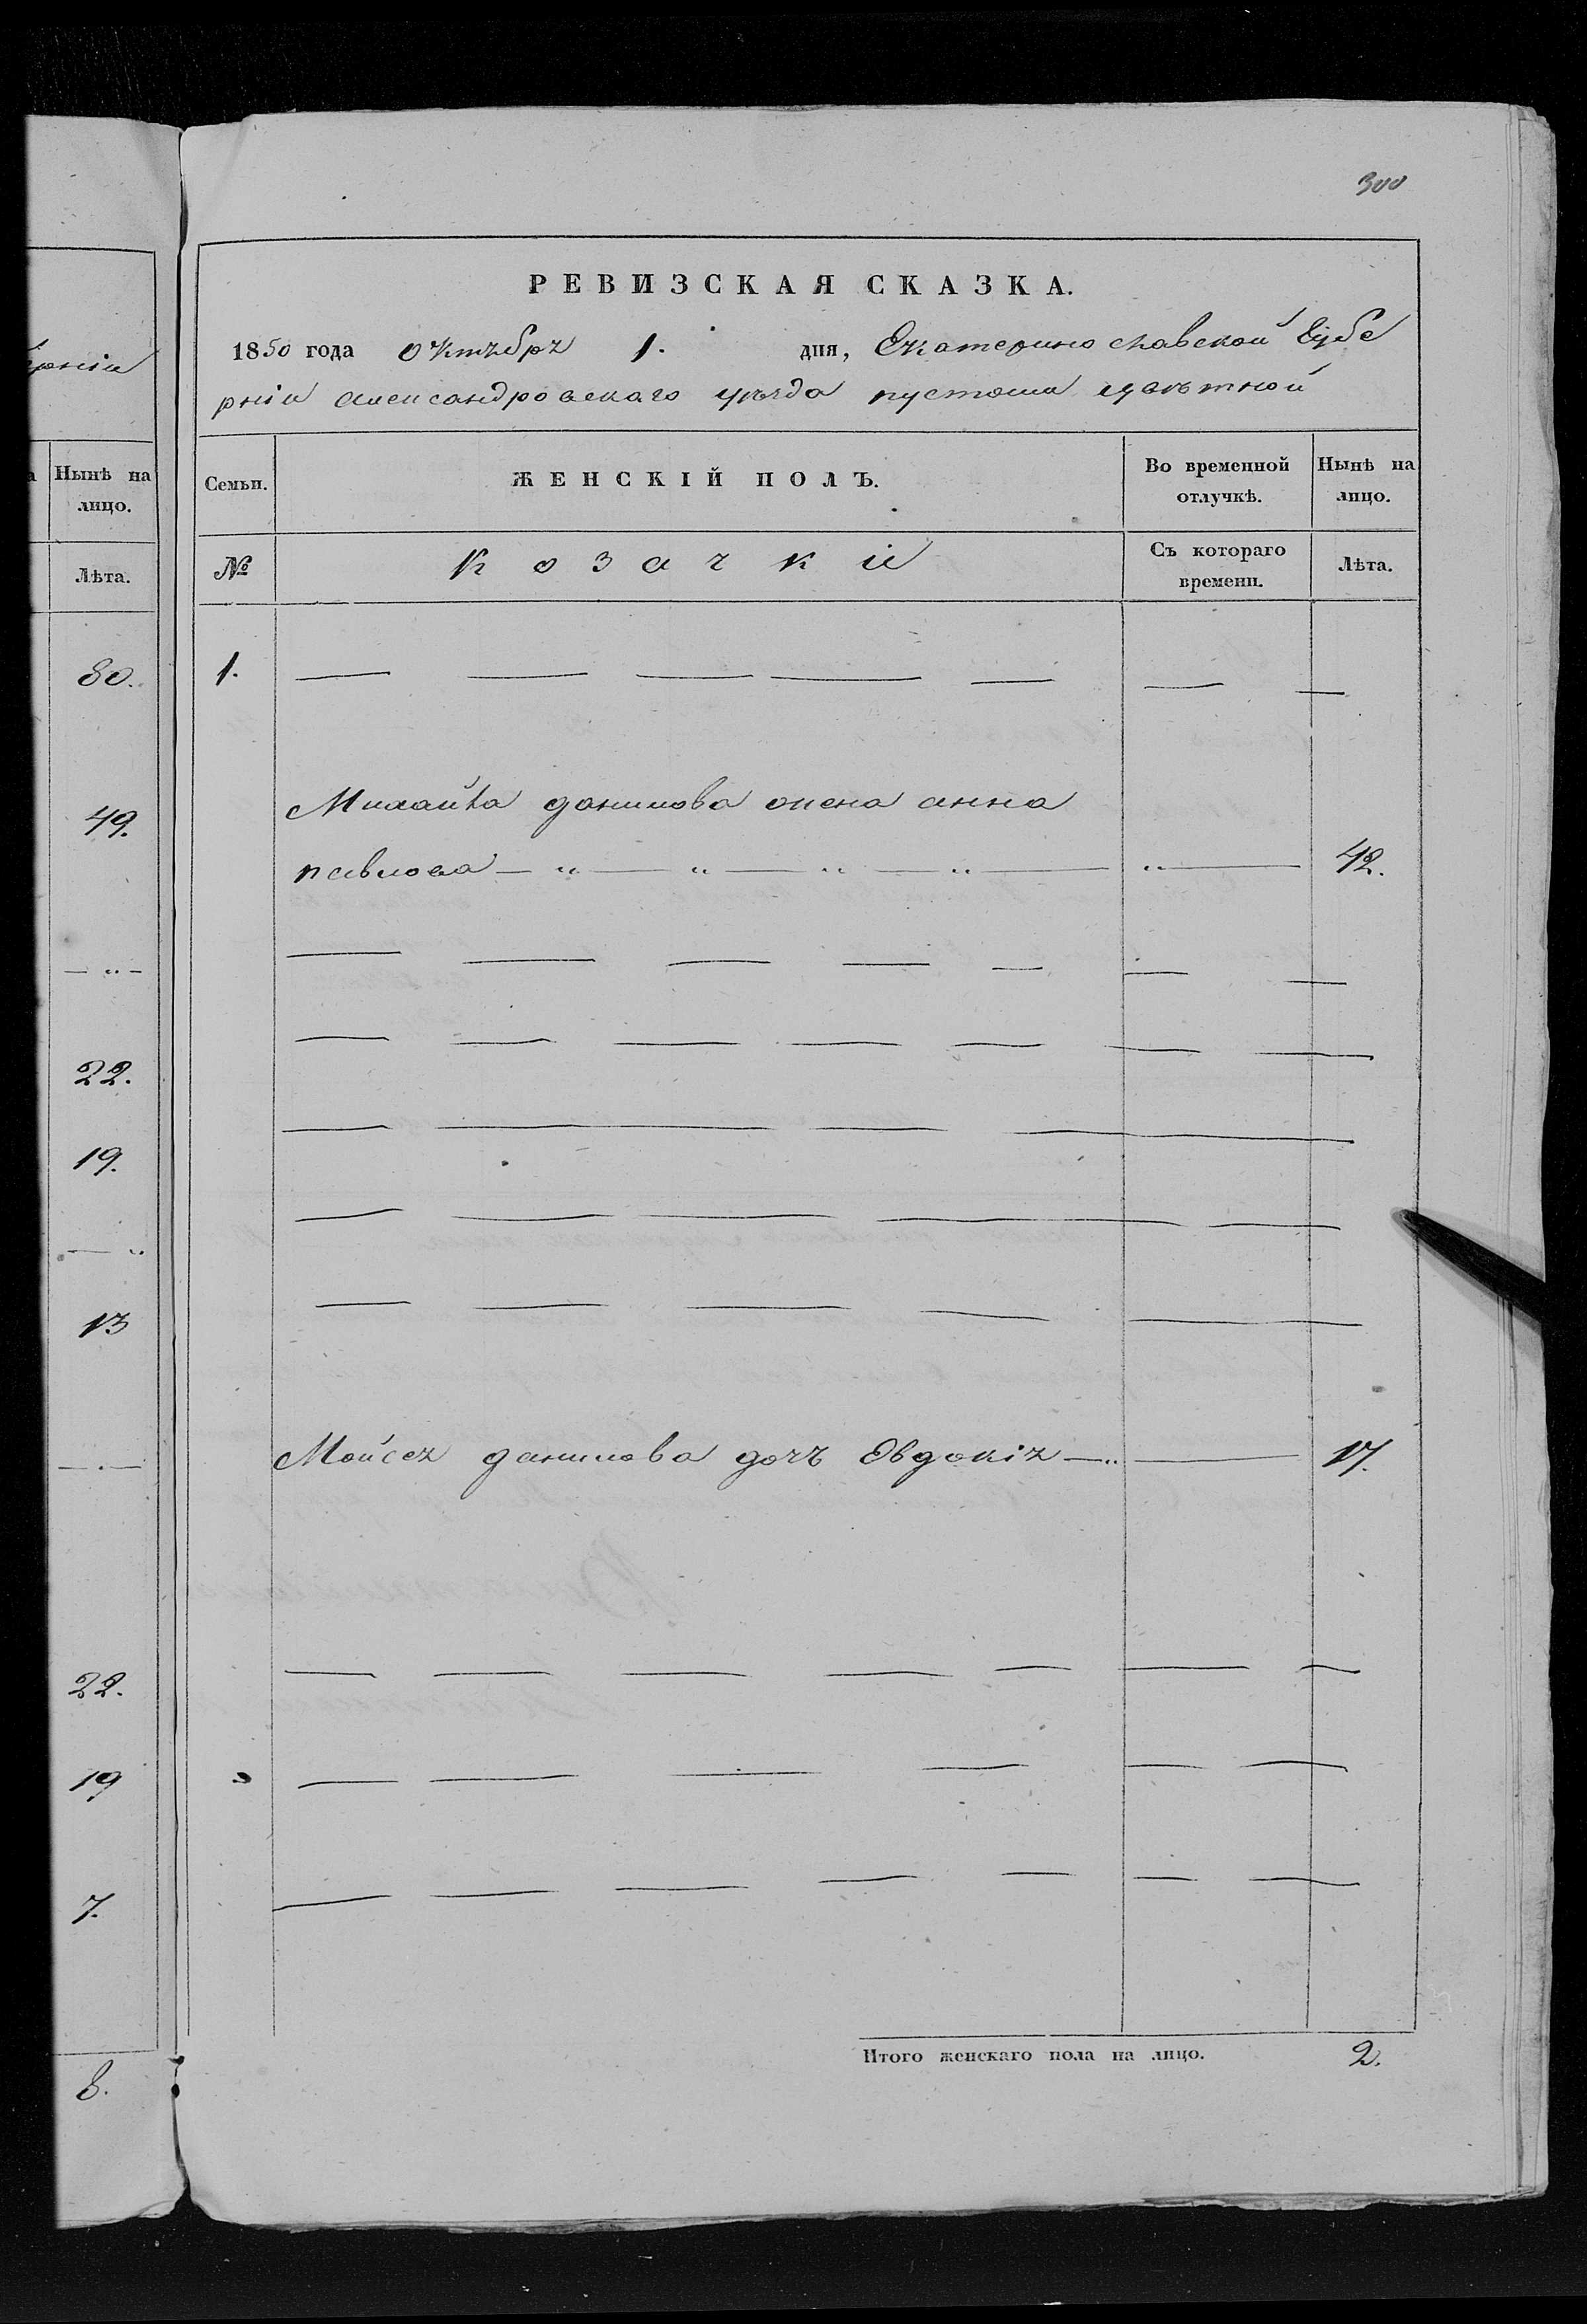 300
РЕВИЗСКАЯ СКАЗКА.
1850 года октября 1. дня, Екатеринославской Губе
рніи александровскаго уезда пустоши цвѣтной
Семьи.
ЖЕНСКІЙ ПОЛЪ.
Во временной отлучкѣ.
Нынѣ на лицо.
№
козачки
Съ котораго времени.
Лѣта.
1.
Михайла данилова жена анна
павлова 42.
Мойсея данилова дочь Евдокія 17.
Итого женскаго пола на лицо. 2.
рніи
Нынѣ на
лицо.
Лѣта.
80.
49.
22.
19.
13
22.
19
7.
8.